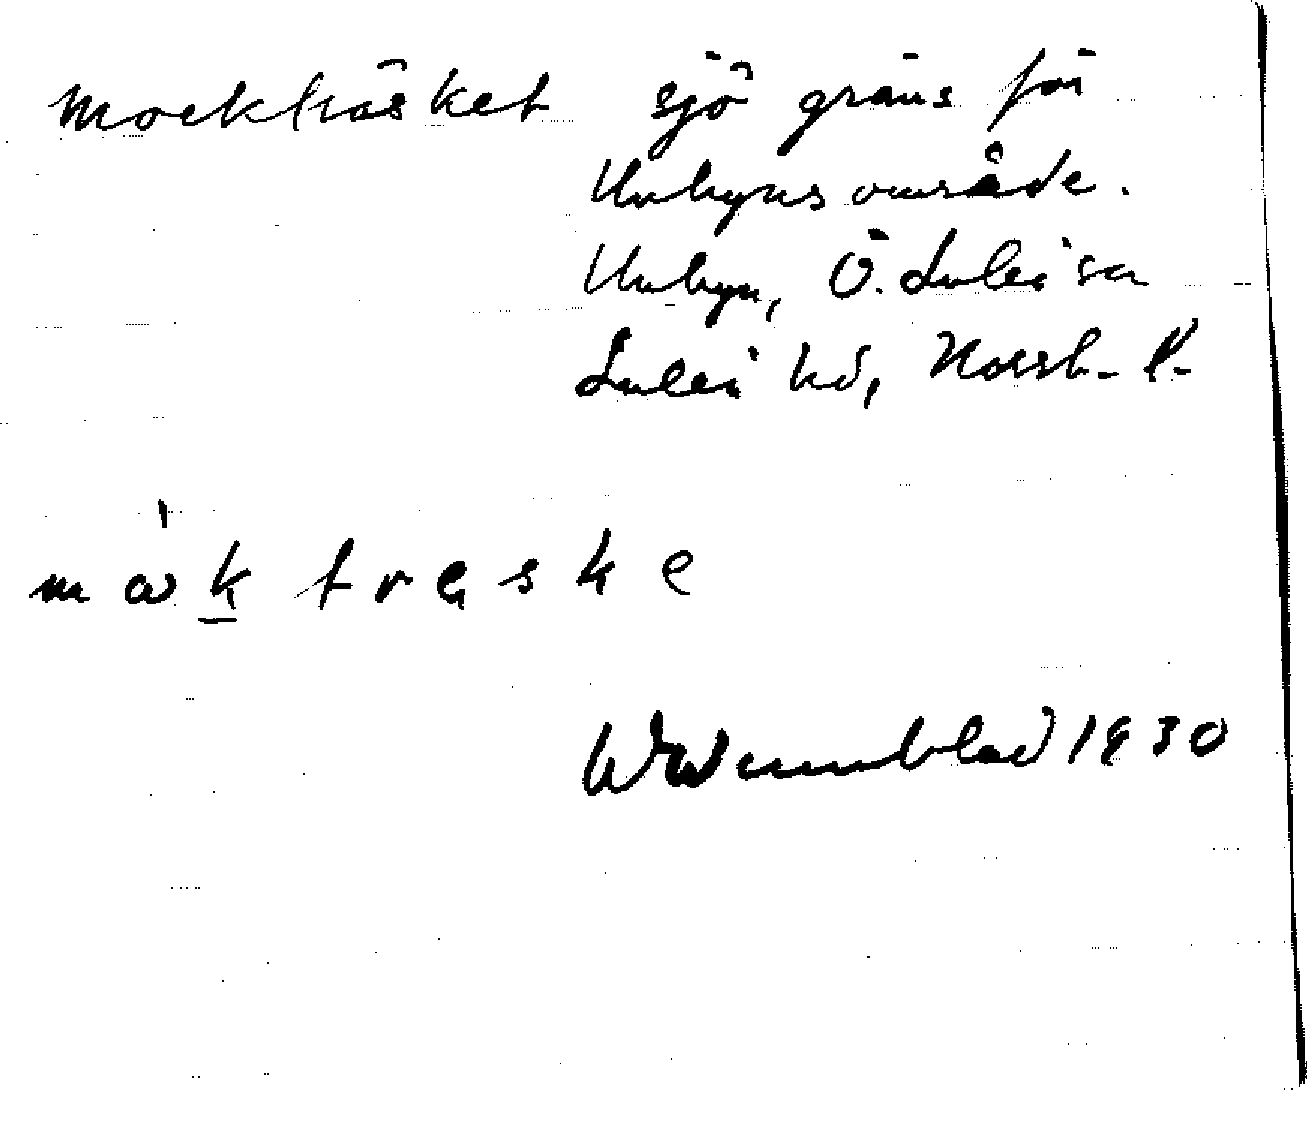 Mockträsket sjö gräns för
Unbyns område.
Unbyn, Ö. Luleå sn
Luleå hd, Norrb. l.
mωk tręske
W Wennblad 1930